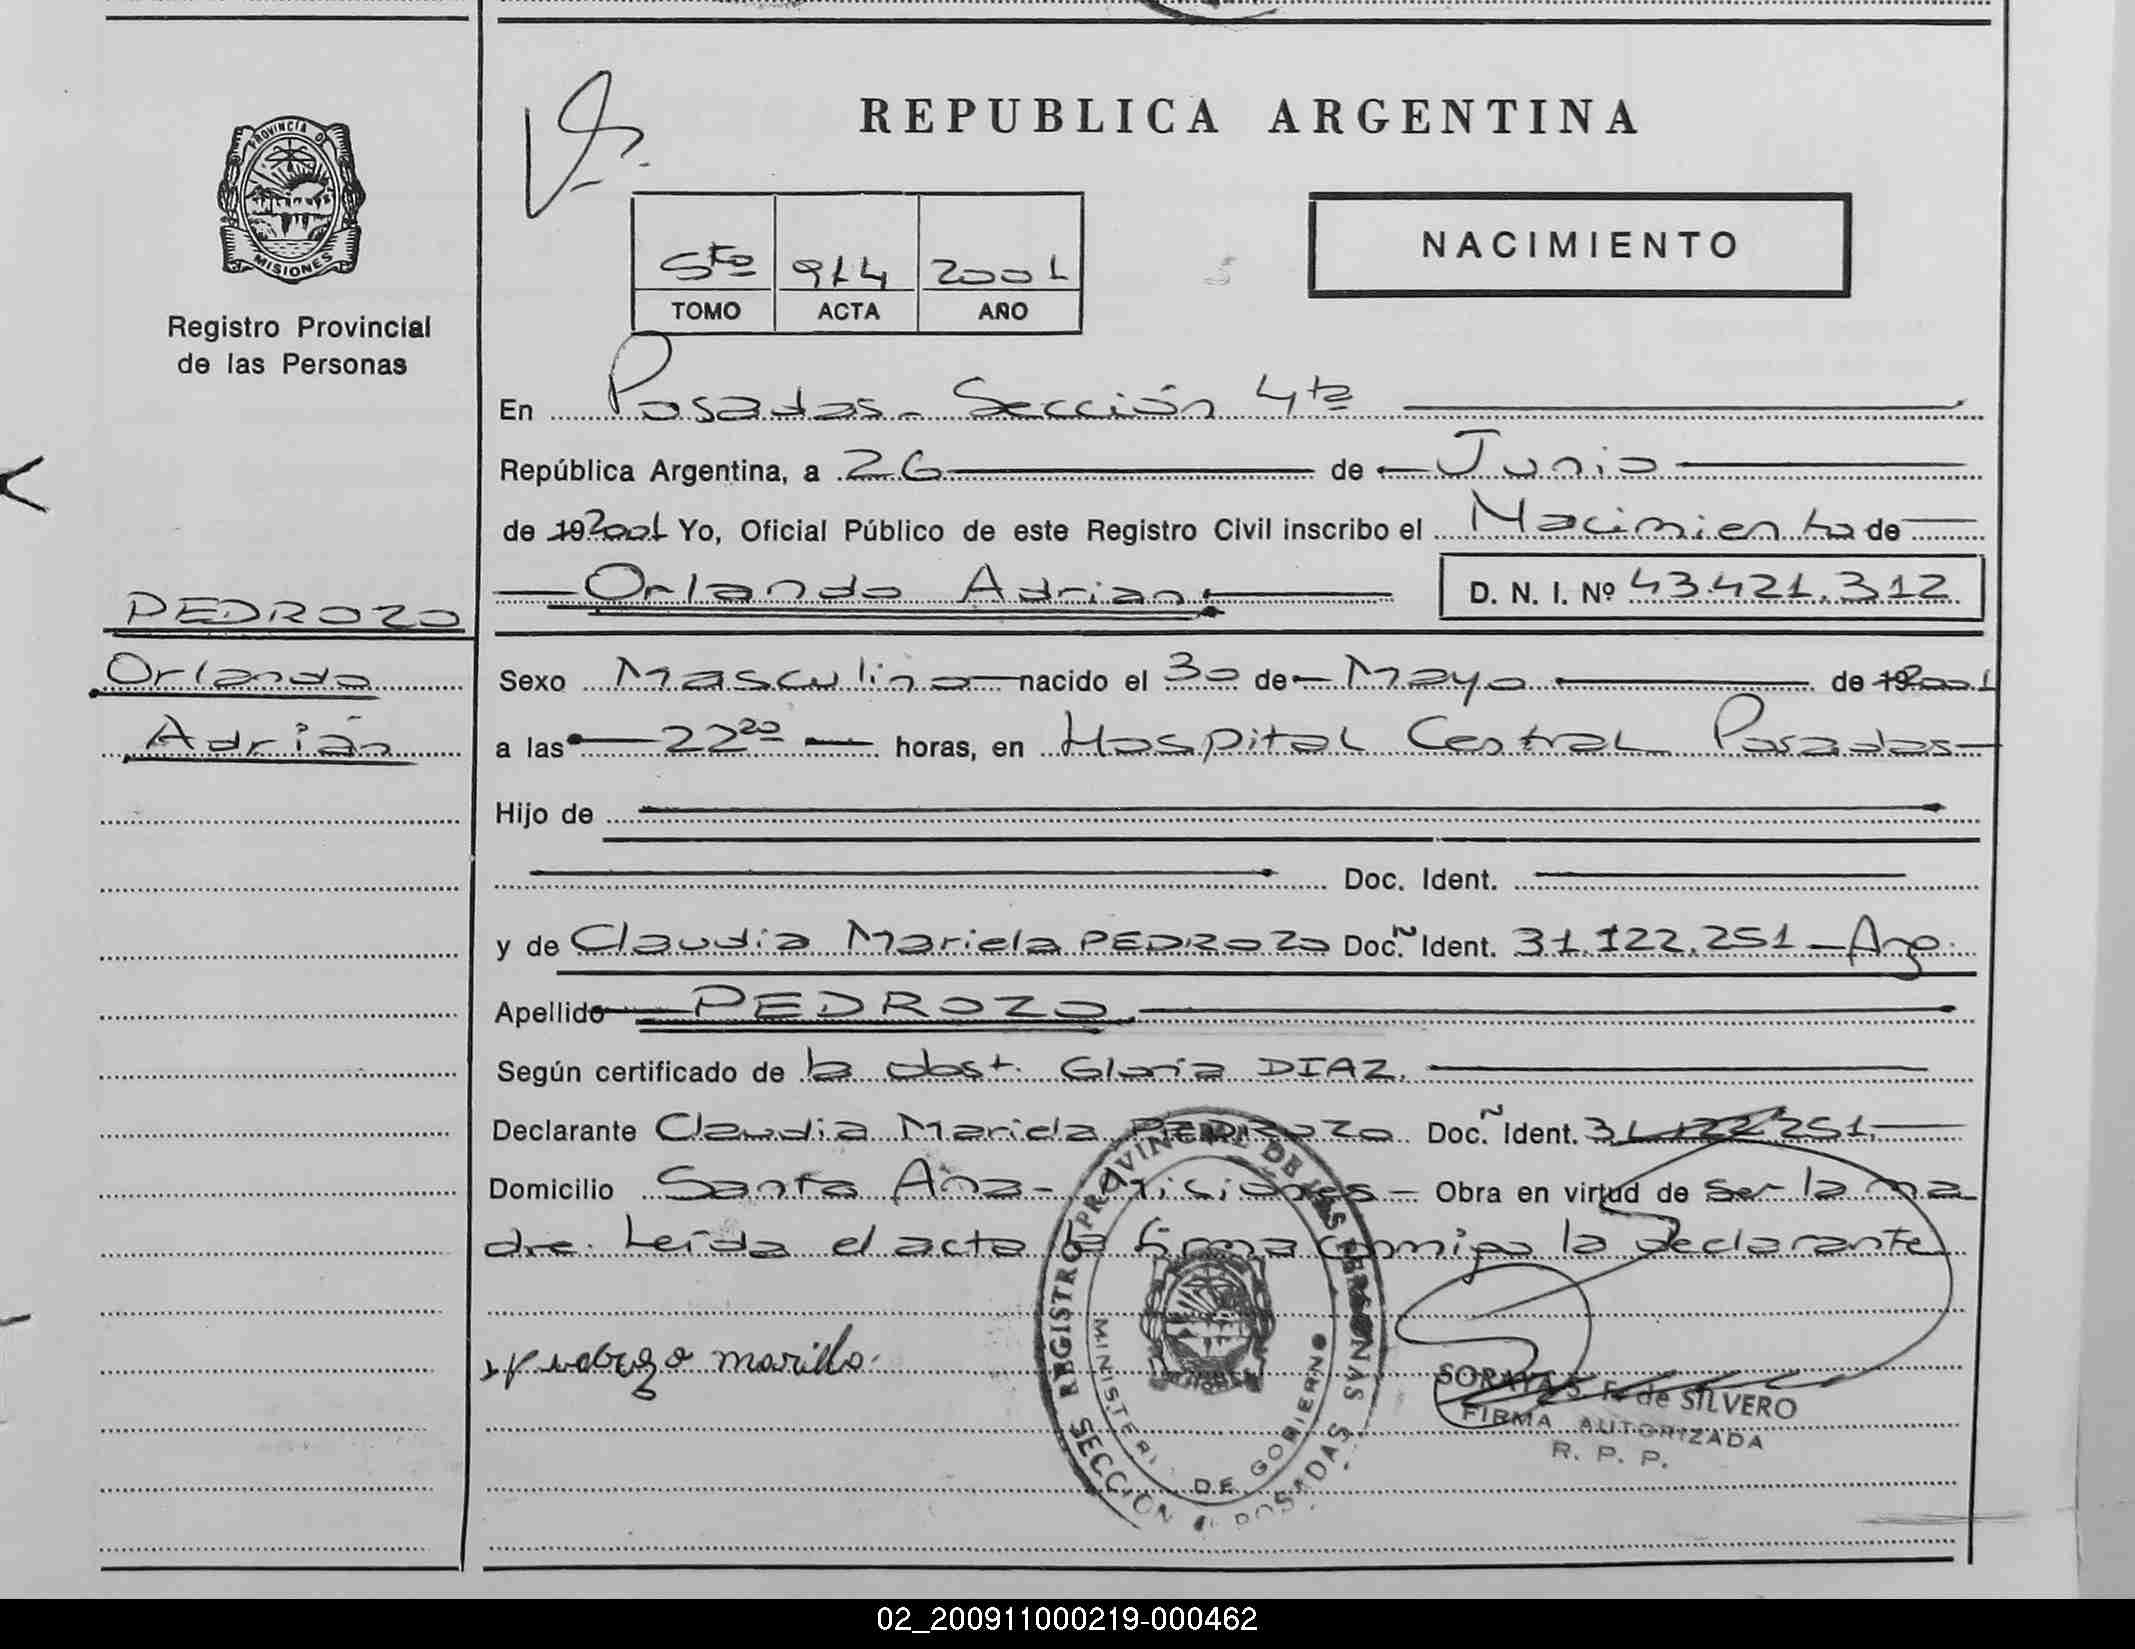 REPUBLICA ARGENTINA
PROVINCIA DE
MISIONES
Registro Provincial
de las Personas
5to 914 2001
TOMO ACTA AÑO
NACIMIENTO
En Posadas - Sección 4ta
República Argentina, a 26 de Junio
de 19 2001 Yo, Oficial Público de este Registro Civil inscribo el Nacimiento de
Orlando Adrian D. N. I. Nº 43.421.312
PEDROZO
Orlando
Adrián
Sexo Masculino nacido el 30 de Mayo de 19 2001
a las 22 20 horas, en Hospital Central Posadas
Hijo de
Doc. Ident.
y de Claudia Mariela PEDROZO Doc. Ident. 31.122.251 - Arg.
Apellido PEDROZO
Según certificado de la obst. Gloria DIAZ.
Declarante Claudia Mariela PEDROZO Doc. Ident. 31.122.251
Domicilio Santa Ana - Misiones - Obra en virtud de ser la ma
dre. Leída el acta la firma conmigo la declarante
REGISTRO PROVINCIAL DE LAS PERSONAS
MINISTERIO DE GOBIERNO
SECCION 4 POSADAS
SORAYA S. F. de SILVERO
FIRMA AUTORIZADA
R. P. P.
02_200911000219-000462